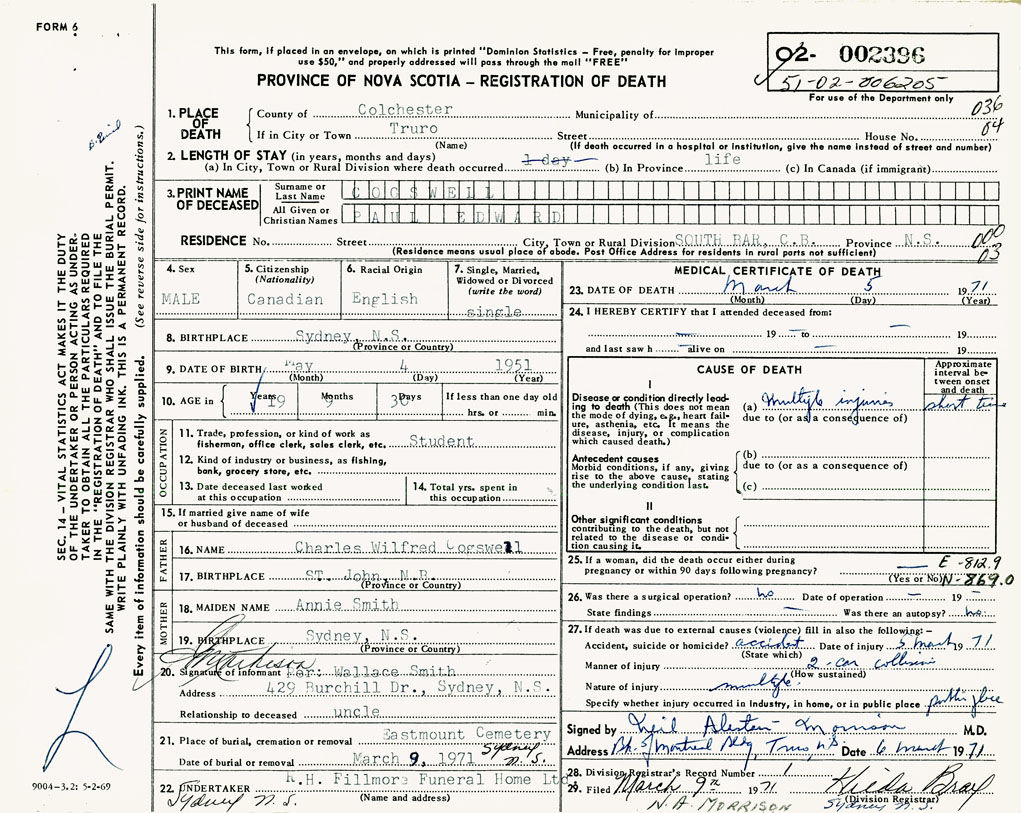 FORM 6
This form, if placed in an envelope, on which is printed "Dominion Statistics – Free, penalty for improper
use $50," and properly addressed will pass through the mail "FREE"
PROVINCE OF NOVA SCOTIA – REGISTRATION OF DEATH
02- 002396
51-02-006205
For use of the Department only
036
04
1. PLACE OF DEATH
County of Colchester Municipality of
If in City or Town Truro Street House No.
(Name) (If death occurred in a hospital or institution, give the name instead of street and number)
2. LENGTH OF STAY (in years, months and days)
(a) In City, Town or Rural Division where death occurred 1 day (b) In Province life (c) In Canada (if immigrant)
3. PRINT NAME OF DECEASED
Surname or Last Name COGSWELL
All Given or Christian Names PAUL EDWARD
RESIDENCE No. Street City, Town or Rural Division SOUTH BAR, C.B. Province N.S.
(Residence means usual place of abode. Post Office Address for residents in rural parts not sufficient)
000
03
4. Sex
MALE
5. Citizenship
(Nationality)
Canadian
6. Racial Origin
English
7. Single, Married,
Widowed or Divorced
(write the word)
single
8. BIRTHPLACE Sydney, N.S.
(Province or Country)
9. DATE OF BIRTH May 4 1951
(Month) (Day) (Year)
10. AGE in
Years 19
Months 9
Days 30
If less than one day old
hrs. or min.
OCCUPATION
11. Trade, profession, or kind of work as
fisherman, office clerk, sales clerk, etc. Student
12. Kind of industry or business, as fishing,
bank, grocery store, etc.
13. Date deceased last worked
at this occupation
14. Total yrs. spent in
this occupation
15. If married give name of wife
or husband of deceased
FATHER
16. NAME Charles Wilfred Cogswell
17. BIRTHPLACE ST. John, N.B.
(Province or Country)
MOTHER
18. MAIDEN NAME Annie Smith
19. BIRTHPLACE Sydney, N.S.
(Province or Country)
20. Signature of informant For: Wallace Smith
Address 429 Burchill Dr., Sydney, N.S.
Relationship to deceased uncle
21. Place of burial, cremation or removal Eastmount Cemetery
Sydney N.S.
Date of burial or removal March 9, 1971
22. UNDERTAKER R.H. Fillmore Funeral Home Ltd
(Name and address)
Sydney N.S.
MEDICAL CERTIFICATE OF DEATH
23. DATE OF DEATH March 5 1971
(Month) (Day) (Year)
24. I HEREBY CERTIFY that I attended deceased from:
— 19 — to — 19
and last saw h — alive on — 19
CAUSE OF DEATH
Approximate
interval be-
tween onset
and death
I
Disease or condition directly lead-
ing to death (This does not mean
the mode of dying, e.g., heart fail-
ure, asthenia, etc. It means the
disease, injury, or complication
which caused death.)
(a) Multiple injuries short time
due to (or as a consequence of)
Antecedent causes
Morbid conditions, if any, giving
rise to the above cause, stating
the underlying condition last.
(b)
due to (or as a consequence of)
(c)
II
Other significant conditions
contributing to the death, but not
related to the disease or condi-
tion causing it.
25. If a woman, did the death occur either during
pregnancy or within 90 days following pregnancy? —
(Yes or No)
E-812.9
N-869.0
26. Was there a surgical operation? no Date of operation — 19 —
State findings — Was there an autopsy? no
27. If death was due to external causes (violence) fill in also the following:–
Accident, suicide or homicide? accident Date of injury 5 March 1971
(State which)
Manner of injury 2-car collision
(How sustained)
Nature of injury multiple
Specify whether injury occurred in Industry, in home, or in public place public place
Signed by Neil Morrison M.D.
Address Bk of Montreal Bldg, Truro NS Date 6 March 1971
28. Division Registrar's Record Number 1
29. Filed March 9th 1971 Hilda Bray
(Division Registrar)
N.A. MORRISON
Sydney N.S.
SEC. 14 – VITAL STATISTICS ACT MAKES IT THE DUTY
OF THE UNDERTAKER OR PERSON ACTING AS UNDER-
TAKER TO OBTAIN ALL THE PARTICULARS REQUIRED
IN THE "REGISTRATION OF DEATH" AND TO FILE THE
SAME WITH THE DIVISION REGISTRAR WHO SHALL ISSUE THE BURIAL PERMIT.
WRITE PLAINLY WITH UNFADING INK. THIS IS A PERMANENT RECORD.
Every item of information should be carefully supplied. (See reverse side for instructions.)
9004-3.2: 5-2-69